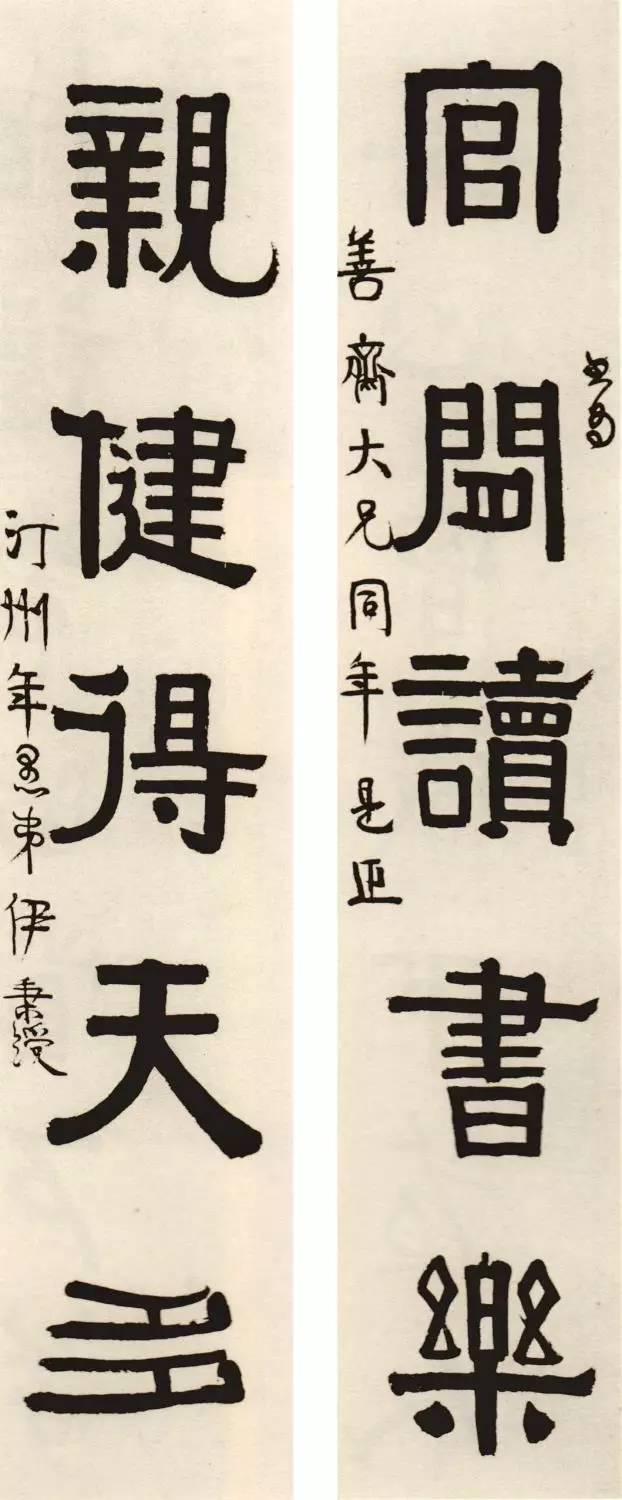 官閒讀書樂
書為
善齋大兄同年是正
親健得天多
汀州年愚弟伊秉綬